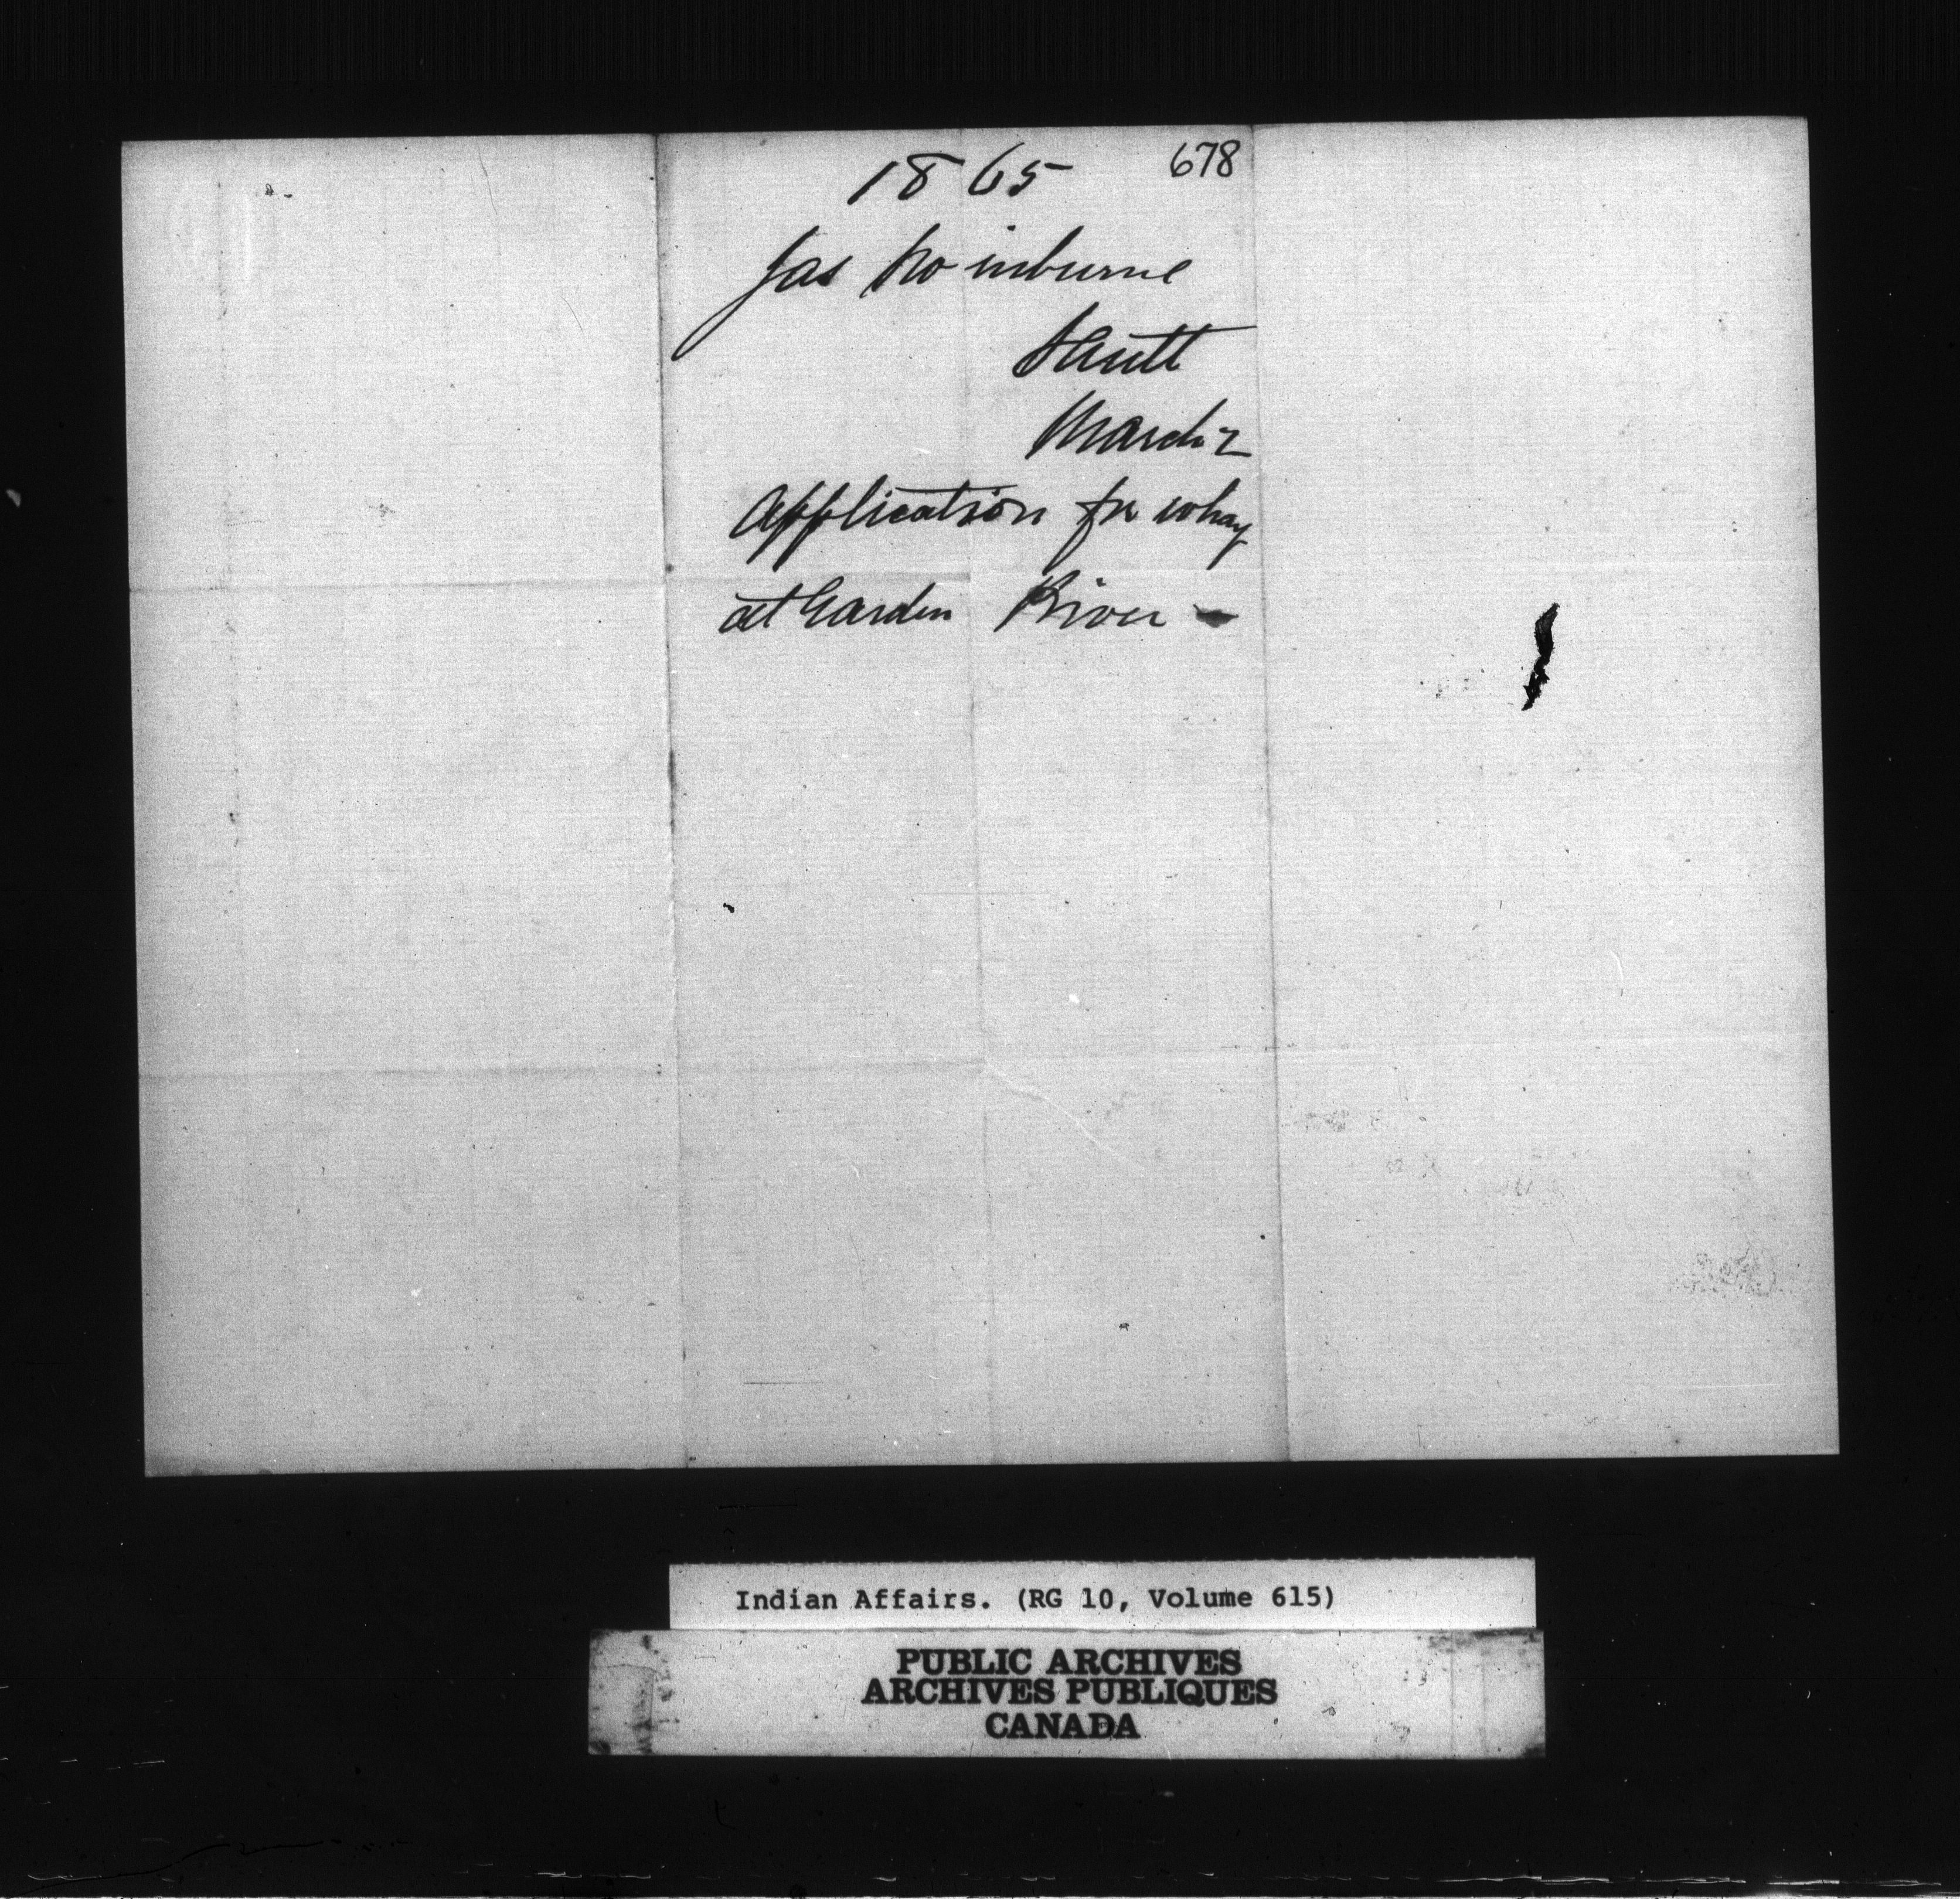 1865 678
Jas
March 2
Application for whay
at Garden River -
Indian Affairs. (RG 10, Volume 615)
PUBLIC ARCHIVES
ARCHIVES PUBLIQUES
CANADA